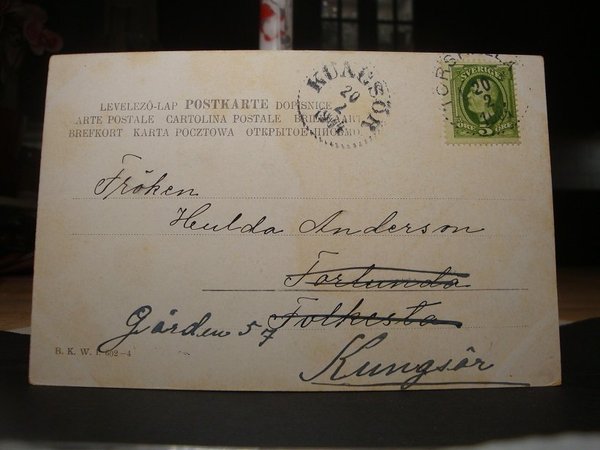 KUNGSÖR
20
2
TORSHÄLLA
20
2
SVERIGE
5 ÖRE 5
LEVELEZŐ-LAP POSTKARTE DOPISNICE
CARTE POSTALE CARTOLINA POSTALE
BREFKORT KARTA POCZTOWA ОТКРЫТОЕ ПИСЬМО
Fröken
Hulda Anderson
Forlunda
Gården 57 Folkesta
Kungsör
B. K. W. I. 602-4